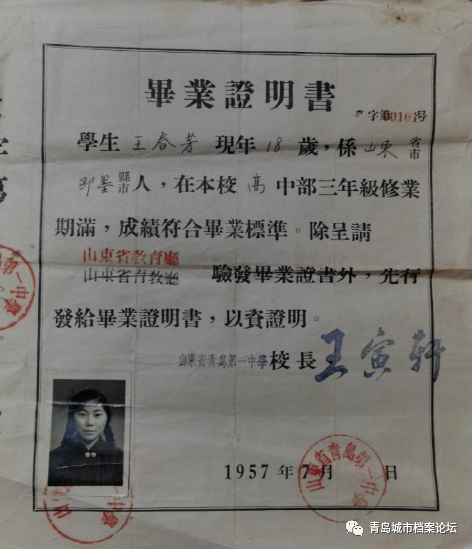 畢業證明書
字第0102号
學生王春芳現年18歲，係山東省市
即墨縣市人，在本校高中部三年級修業
期滿，成績符合畢業標準。除呈請
山東省教育廳
山東省育教廳 驗發畢業證書外，先行
發給畢業證明書，以資證明。
山東省青島第一中學校長 王寅軒
1957年7月 日
山東省青島第一中學
青岛城市档案论坛